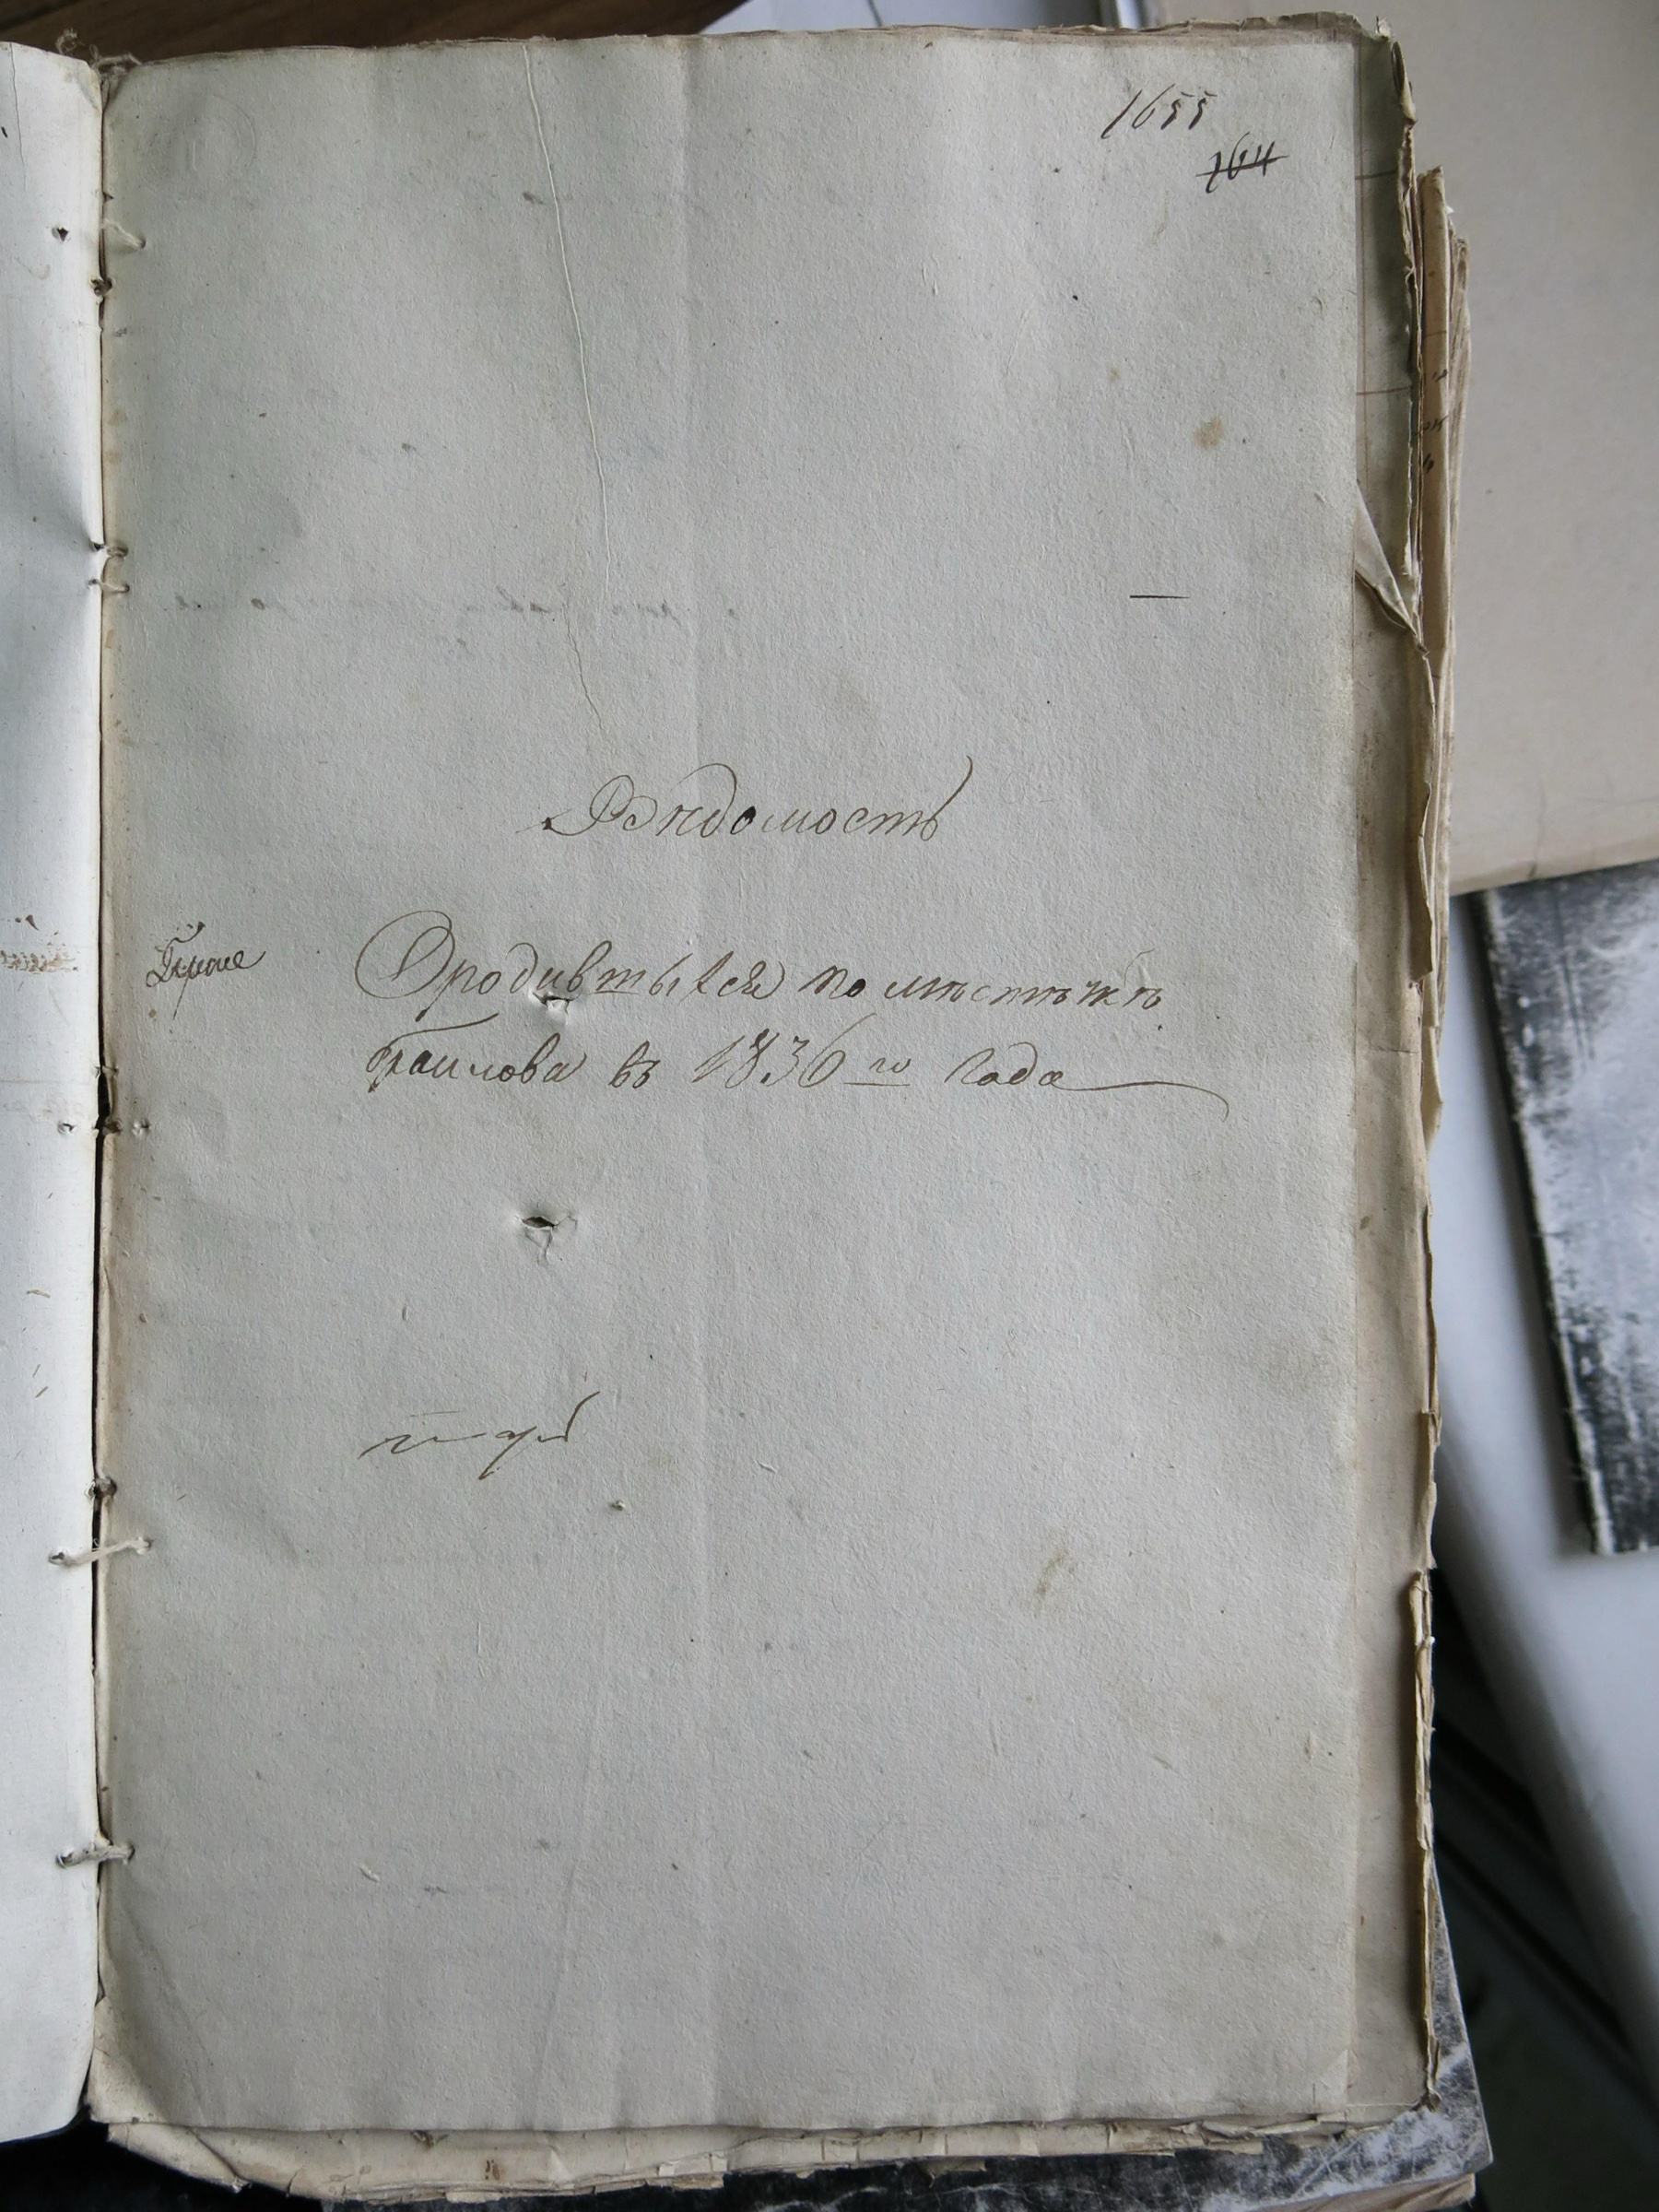 1655
164
Вѣдомость
О родившыхся по мѣстѣчкѣ
Браилова въ 1836 го года